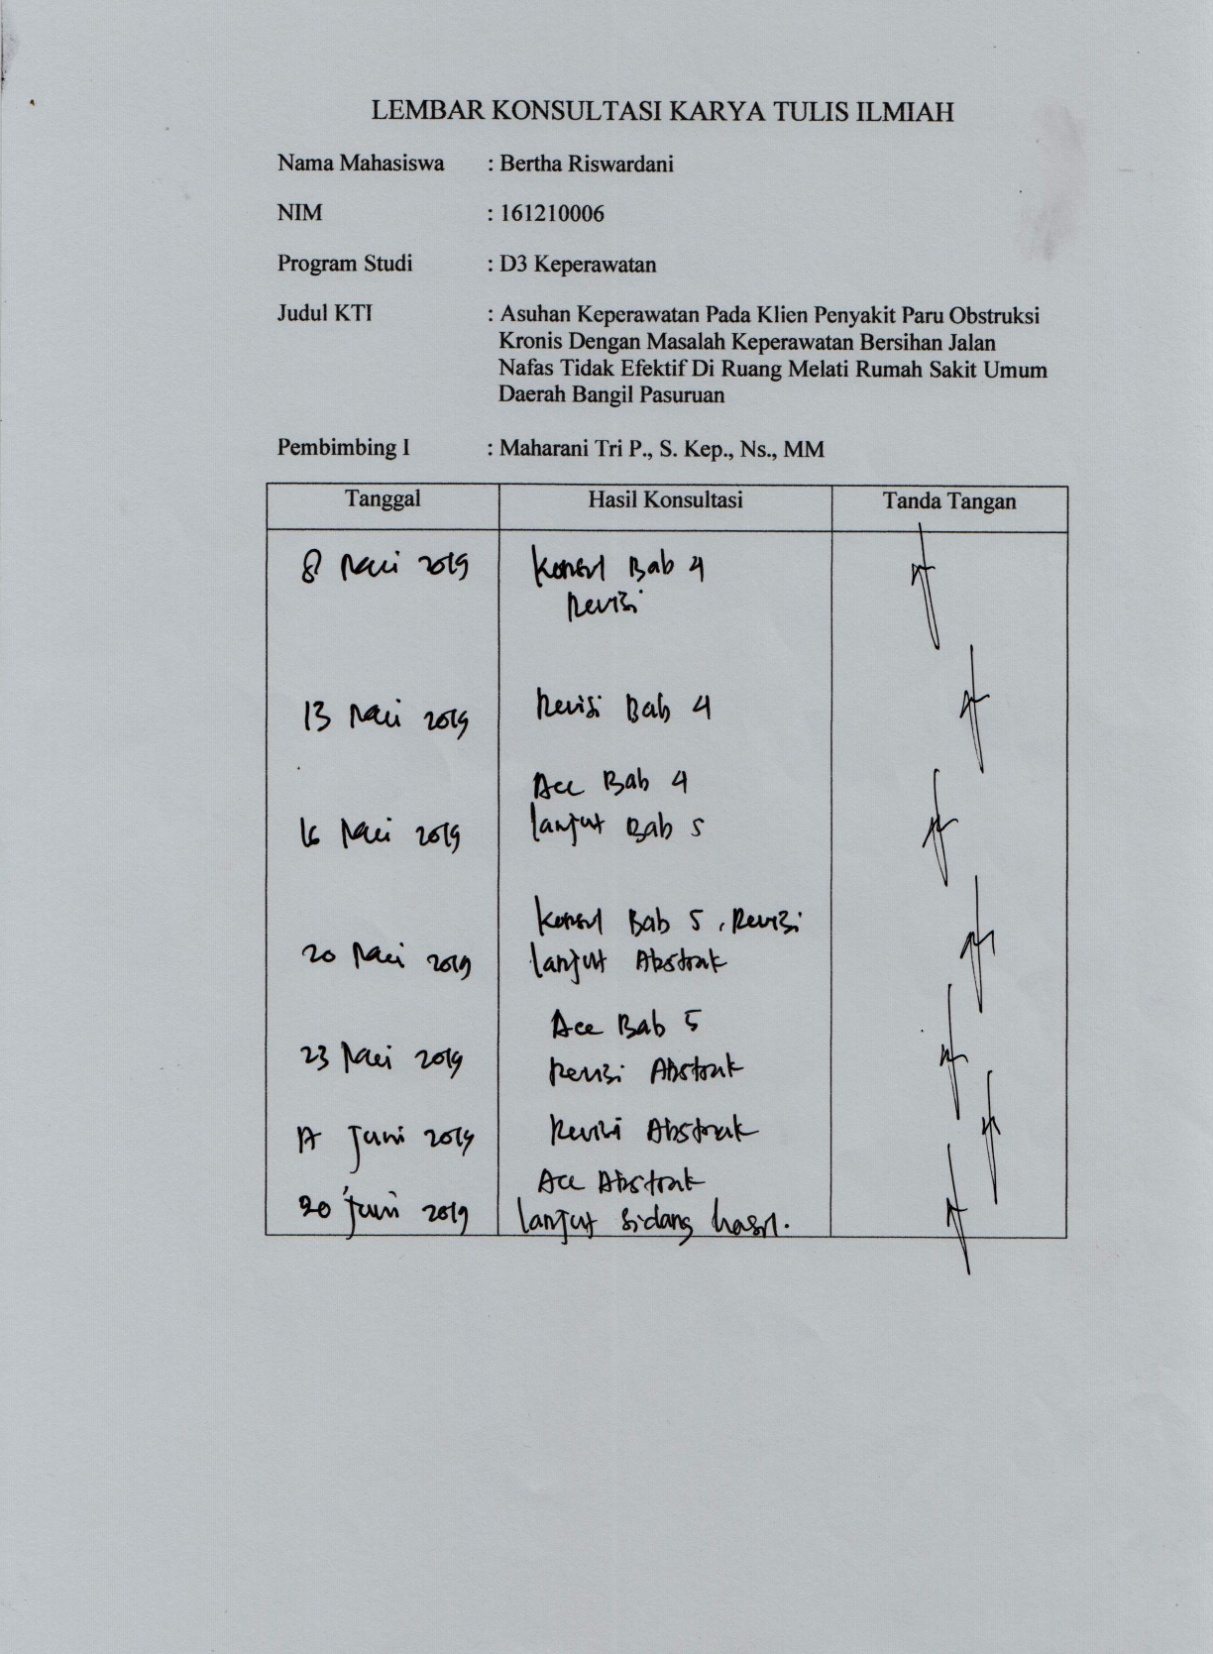 LEMBAR KONSULTASI KARYA TULIS ILMIAH
Nama Mahasiswa : Bertha Riswardani
NIM : 161210006
Program Studi : D3 Keperawatan
Judul KTI : Asuhan Keperawatan Pada Klien Penyakit Paru Obstruksi
Kronis Dengan Masalah Keperawatan Bersihan Jalan
Nafas Tidak Efektif Di Ruang Melati Rumah Sakit Umum
Daerah Bangil Pasuruan
Pembimbing I : Maharani Tri P., S. Kep., Ns., MM
Tanggal Hasil Konsultasi Tanda Tangan
8 Mei 2019 Konsul Bab 4
Revisi
13 Mei 2019 Revisi Bab 4
Acc Bab 4
16 Mei 2019 lanjut Bab 5
Konsul Bab 5, Revisi
20 Mei 2019 lanjut Abstrak
Acc Bab 5
23 Mei 2019 Revisi Abstrak
17 Juni 2019 Revisi Abstrak
Acc Abstrak
20 Juni 2019 lanjut Sidang hasil.